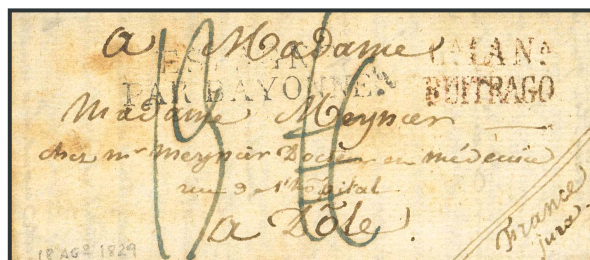 a Madame
ESPAGNE
PAR BAYONNE
BUITRAGO
Madame Meynier
chez mr Meynier Docteur en médecine
rue de l'hôpital
a Dôle.
France
jura.
18 AGO 1829